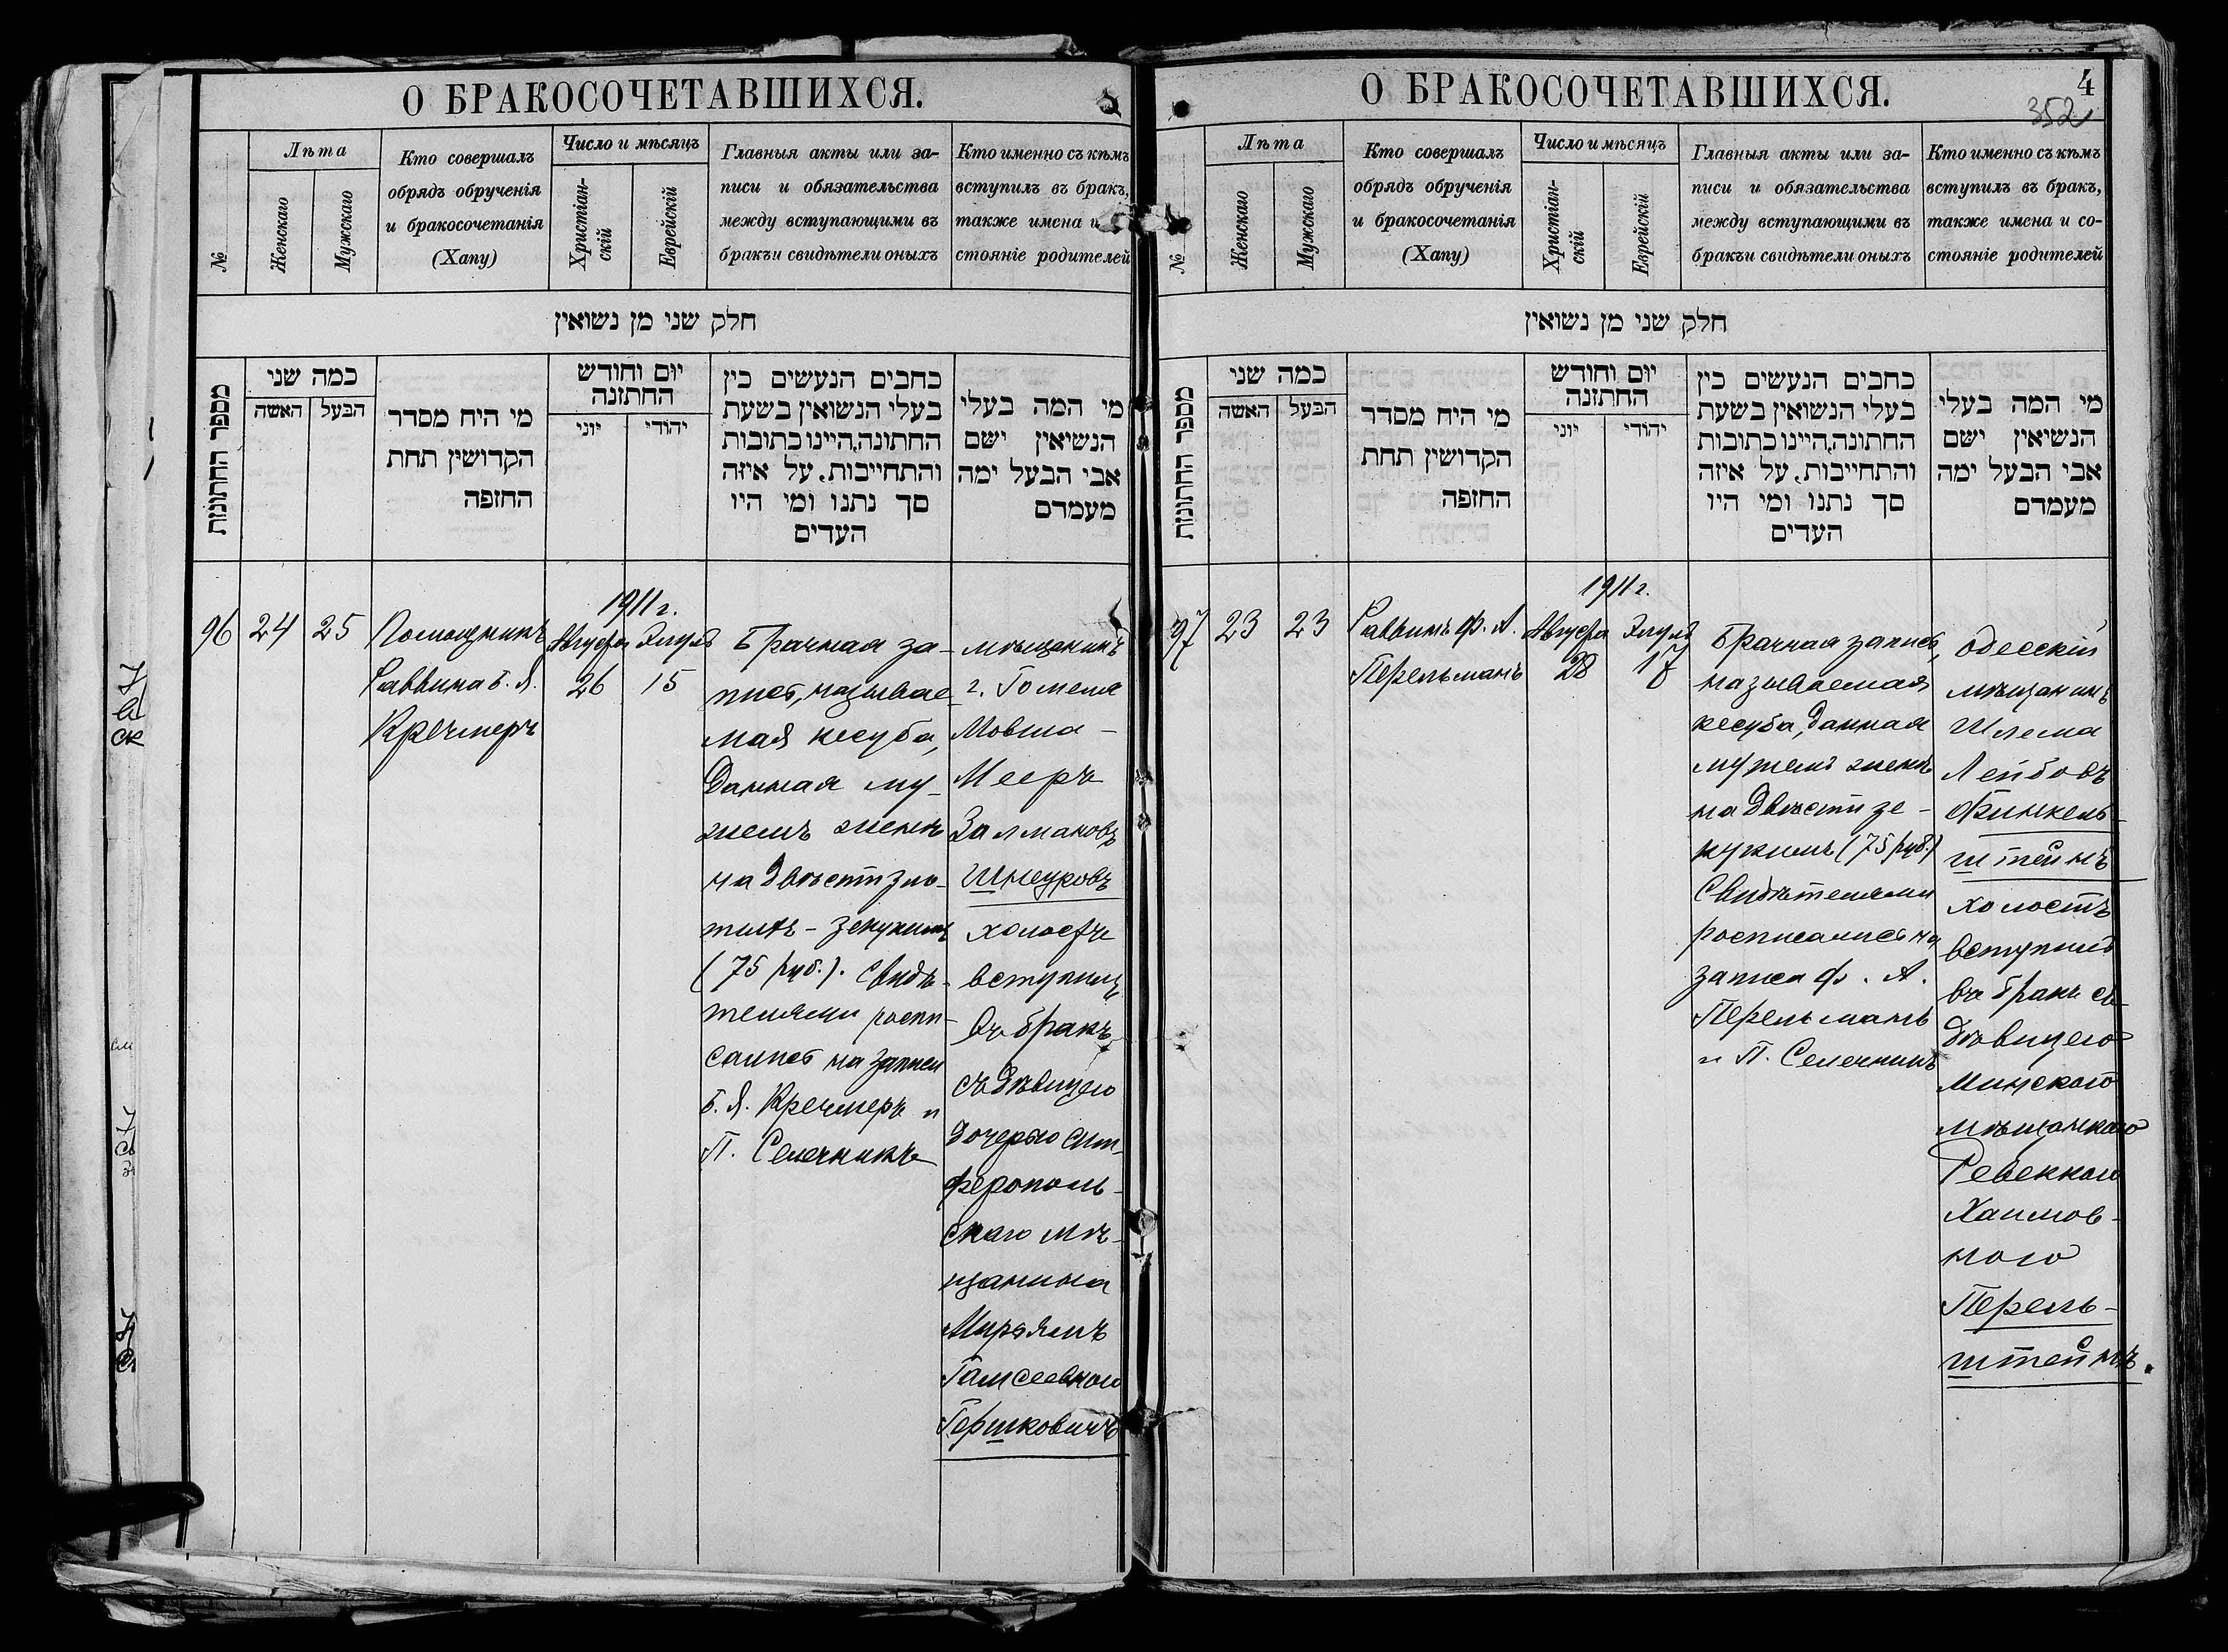 О БРАКОСОЧЕТАВШИХСЯ.
№
Лѣта
Женскаго
Мужскаго
Кто совершалъ
обрядъ обрученія
и бракосочетанія
(Хапу)
Число и мѣсяцъ
Христіан-
скій
Еврейскій
Главныя акты или за-
писи и обязательства
между вступающими въ
бракъ и свидѣтели оныхъ
Кто именно съ кѣмъ
вступилъ въ бракъ,
также имена и
стояніе родителей
חלק שני מן נשואין
מספר החתונות
כמה שני
הבעל
האשה
מי היח מסדר
הקדושין תחת
החופה
יום וחודש
החתונה
יהודי
יוני
כתבים הנעשים בין
בעלי הנשואין בשעת
החתונה,היינו כתובות
והתחייבות, על איזה
סך נתנו ומי היו
העדים
מי המה בעלי
הנשיאין ישם
אבי הבעל ימה
מעמדם
96
24
25
Помощникъ
Раввина Б. Я.
Кречмеръ
1911 г.
Августа
26
Элулъ
15
Брачная за-
пись, называе-
мая кесуба,
данная му-
жемъ женѣ
на двѣсти зло-
тыхъ - зекукимъ
(75 руб.). Свидѣ-
телями роспи-
сались на записи
Б. Я. Кречмеръ и
П. Селечникъ
мѣщанинъ
г. Гомеля
Мовша -
Мееръ
Залмановъ
Шнеуровъ
холостъ
вступилъ
въ бракъ
съ дѣвицею
дочерью Сим-
ферополь-
скаго мѣ-
щанина
Мирьямъ
Гамсеевною
Гершковичъ
О БРАКОСОЧЕТАВШИХСЯ.
4
352
№
Лѣта
Женскаго
Мужскаго
Кто совершалъ
обрядъ обрученія
и бракосочетанія
(Хапу)
Число и мѣсяцъ
Христіан-
скій
Еврейскій
Главныя акты или за-
писи и обязательства
между вступающими въ
бракъ и свидѣтели оныхъ
Кто именно съ кѣмъ
вступилъ въ бракъ,
также имена и со-
стояніе родителей
חלק שני מן נשואין
מספר החתונות
כמה שני
הבעל
האשה
מי היח מסדר
הקדושין תחת
החופה
יום וחודש
החתונה
יהודי
יוני
כתבים הנעשים בין
בעלי הנשואין בשעת
החתונה,היינו כתובות
והתחייבות, על איזה
סך נתנו ומי היו
העדים
מי המה בעלי
הנשיאין ישם
אבי הבעל ימה
מעמדם
97
23
23
Раввинъ Ф. А.
Перельманъ
1911 г.
Августа
28
Элулъ
17
Брачная запись,
называемая
кесуба, данная
мужемъ женѣ
на двѣсти зе-
кукимъ (75 руб.)
Свидѣтелями
росписались на
записи Ф. А.
Перельманъ
и П. Селечникъ
Одесскій
мѣщанинъ
Шлема
Лейбовъ
Финкель-
штейнъ
холостъ
вступилъ
въ бракъ съ
дѣвицею
Минскою
мѣщанкою
Ревеккою
Хаимов-
ною
Перель-
штейнъ.